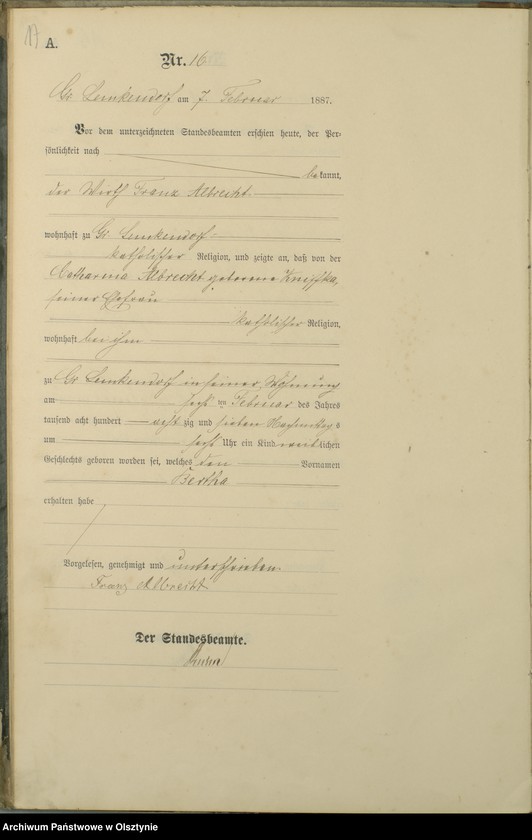 17
A.
Nr. 16
Gr. Lemkendorf am 7 Februar 1887.
Vor dem unterzeichneten Standesbeamten erschien heute, der Per-
sönlichkeit nach
bekannt,
der Wirth Franz Albrecht
wohnhaft zu Gr. Lemkendorf
katholischer Religion, und zeigte an, daß von der
Catharina Albrecht geborene
seiner Ehefrau
katholischer Religion,
wohnhaft bei ihm
zu Gr. Lemkendorf in seiner Wohnung
am sechsten Februar des Jahres
tausend acht hundert acht zig und sieben Nachmittags
um sechs Uhr ein Kind weiblichen
Geschlechts geboren worden sei, welches den Vornamen
Bertha
erhalten habe
Vorgelesen, genehmigt und unterschrieben
Franz Albrecht
Der Standesbeamte.
Archiwum Państwowe w Olsztynie